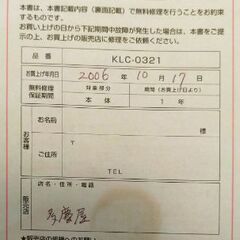 本書は、本書記載内容（裏面記載）で無料修理を行うことをお約束
するものです。
お買い上げの日から下記期間中故障が発生した場合は、本書をご提
示の上、お買上げの販売店に修理をご依頼ください。
品番 KLC-0321
お買上げ年月日 2006年10月17日
無料修理保証期間 対象部分 期間（お買上げ日より）
本体 1年
お客様
お名前 様
ご住所 〒
TEL
販売店
店名・住所・電話
多慶屋